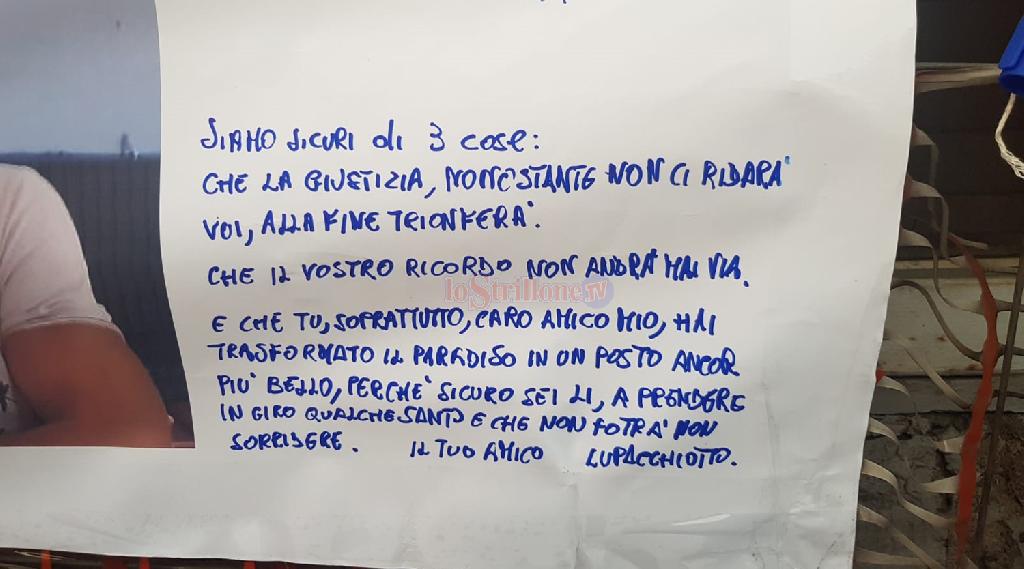 SIAMO SICURI di 3 cose:
CHE LA GIUSTIZIA, NONOSTANTE NON CI RIDARA'
VOI, ALLA FINE TRIONFERA'.
CHE IL VOSTRO RICORDO NON ANDRA' MAI VIA.
loStrillone TV
E CHE TU, SOPRATTUTTO, CARO AMICO MIO, HAI
TRASFORMATO IL PARADISO IN UN POSTO ANCOR
PIU' BELLO, PERCHE' SICURO SEI LI, A PRENDERE
IN GIRO QUALCHE SANTO E CHE NON POTRA' NON
SORRIDERE. IL TUO AMICO LUPACCHIOTTO.